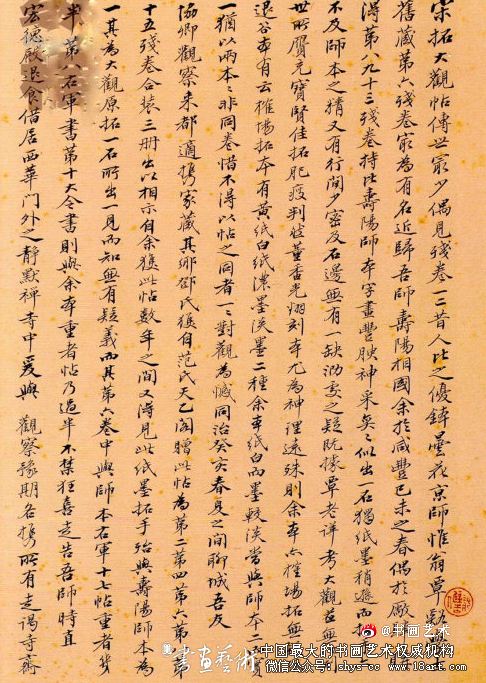 宋拓大觀帖傳世寂少偶見殘卷一二昔人比之優鉢曇花京師惟翁覃谿
舊藏第六殘卷寂為有名近歸吾師壽陽相國余於咸豐己未之春偶於厰
得第八九十三殘卷持比壽陽師本字畫豐腴神采奕〻似出一石獨紙墨稍遜而拓
不及師本之精又有行間少密及石邊無有一缺泐之疑既據覃老詳考大觀
世所贋充寶賢佳拓肥瘦判然董香光翻刻本尤為神理逺殊則余本亦榷場拓無
退谷有云榷場拓本有黄紙白紙濃墨淡墨二種余本紙白而墨較淡當與師本二實
一猶以兩本〻非同卷惜不得以帖之同者一一對觀為憾同治癸亥春夏之間聊城吾友
協卿觀察来都適攜家藏其鄉邵氏後自范氏天乙閣贈此帖為第二第四第六第八第
十五殘卷合裝三冊出以相示自余獲此帖數年之間又得見此紙墨拓手殆與壽陽師本為
一其為大觀原拓一石所出一見而知無有疑義而其第六卷中與師本右軍十七帖重者幾
半第八右軍書第十大令書則與余本重者帖乃過半不禁狂喜走告吾師時直
宏德殿退食借居西華門外之靜默禪寺中爰與 觀察豫期各攜所有走謁寺齋
書画艺术
中国最大的书画艺术权威机构
微信公众号:shys-cc www.18art.com
@书画艺术